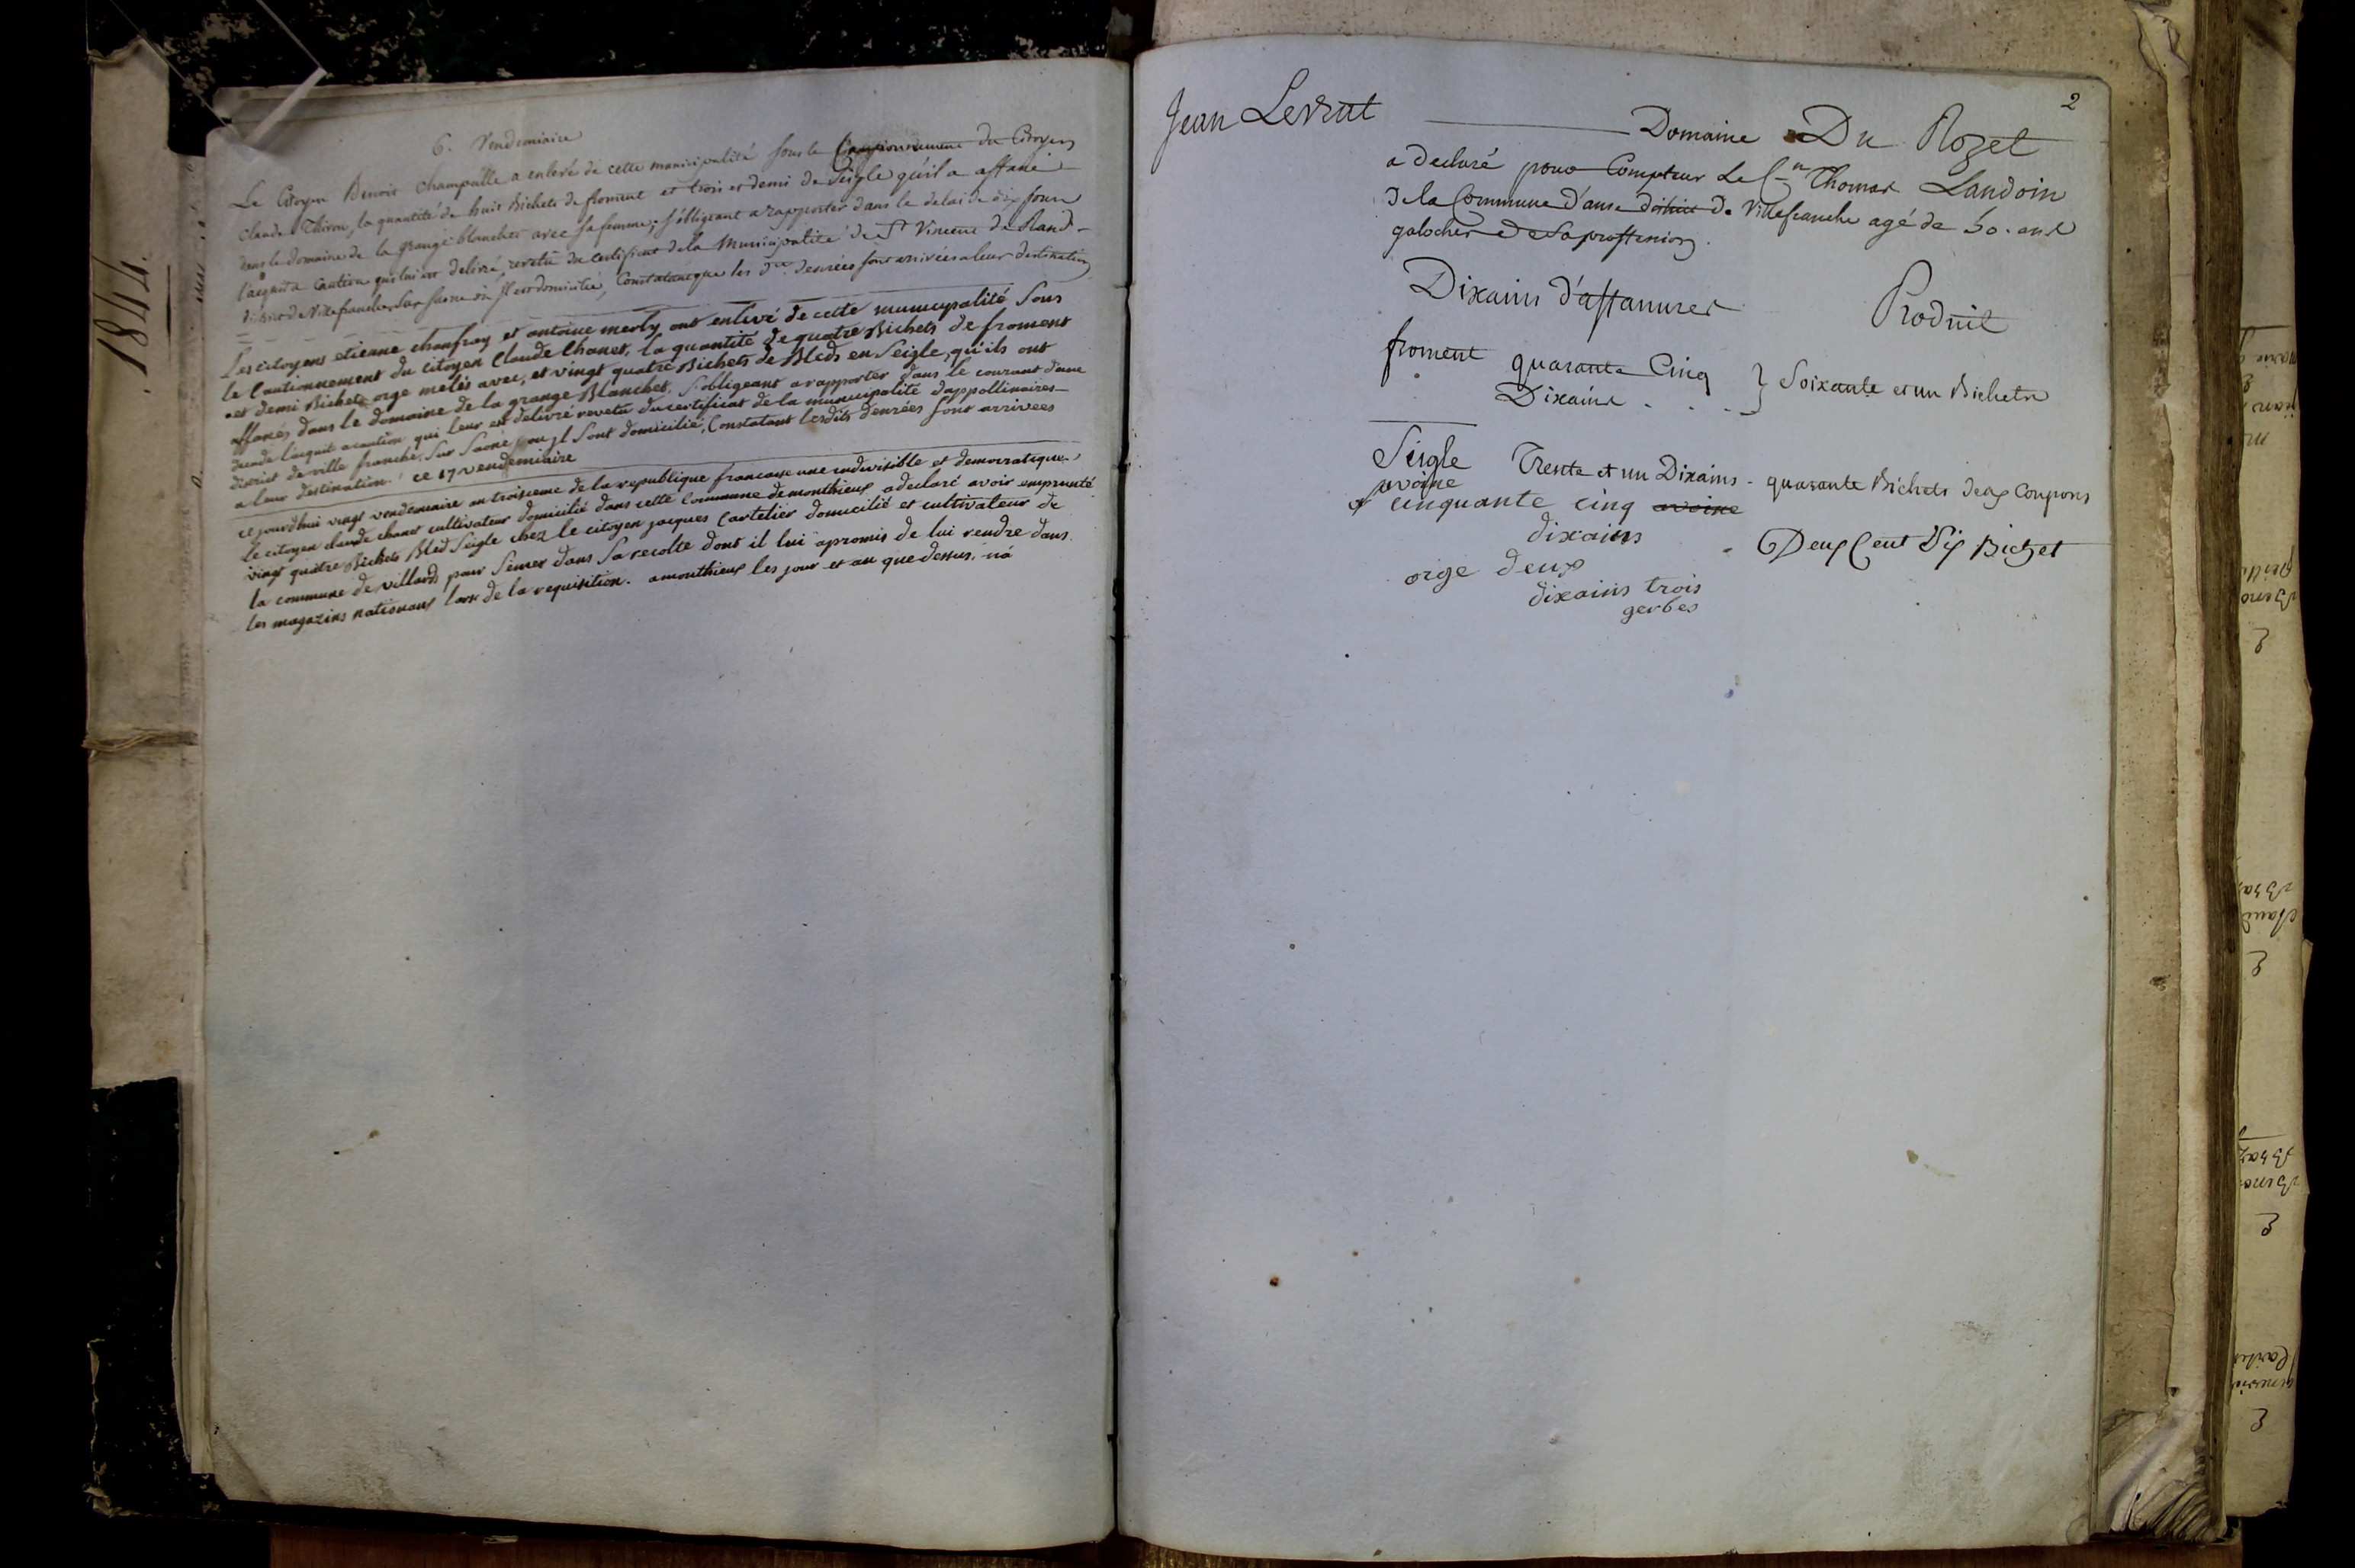 1844.
6. Vendemiaire
Le Citoyen Benoit Champalle a enlevé de cette municipalité sous le Cautionnement du Citoyen
Claude Thiron, la quantité de huit Bichets de froment et trois et demi de Seigle qu'il a affané
dans le domaine de la grange blanchet avec sa femme, s'obligeant a rapporter dans le delai de dix jours
l'aquit a Caution qui lui est delivré, revetu du certificat de la Municipalité de St Vincent de
district de Villefranche, Sur Saone où il est domicilié, Constatant que les dtes denrées sont arrivées a leur destination
Les citoyens etienne chanfray et antoine merly ont enlevé de cette municipalité Sous
le Cautionnement du citoyen Claude Chanet, la quantité de quatre Bichets de froment
et demi Bichets orge melés avec, et vingt quatre Bichets de Bleds en Seigle, qu'ils ont
affanés dans le domaine de la grange Blanchet, s'obligeant a rapporter dans le courant d'une
decade l'aquit a caution qui leur est delivré revetu du certificat de la municipalité d'appollinaires
district de ville franche, Sur Saone, ou jl Sont domicilié, Constatant lesdits denrées sont arrivées
a leur destination. ce 17 vendemiaire
cejourdhui vingt vendemiaire an troisieme de la republique francaise une indivisible et democratique
le citoyen claude chanet cultivateur domicilié dans cette commune demonthieux adeclaré avoir emprunté
vingt quatre Bichets Bled Seigle chez le citoyen jacques Cartelier domicilié et cultivateur de
la commune de villards pour Semer dans Sa recolte dont il lui apromis de lui rendre dans
les magazins nationaux lors de la requisition. amonthieux les jour et an que dessus. na
2
Jean Levrat
Domaine Du Rozet
a declaré pour Compteur Le Cen Thomas Landoin
de la Commune d'anse district de Villefranche agé de 50. ans
galocher de Sa proffession.
Dixains d'affanures Produit
froment quarante Cinq } Soixante et un Bichets
Dixains . . .
Seigle Trente et un Dixains - quarante Bichets deux Coupons
avoine
cinquante cinq avoine
dixains - Deux Cent Six Bichet
orge deux
dixains trois
gerbes